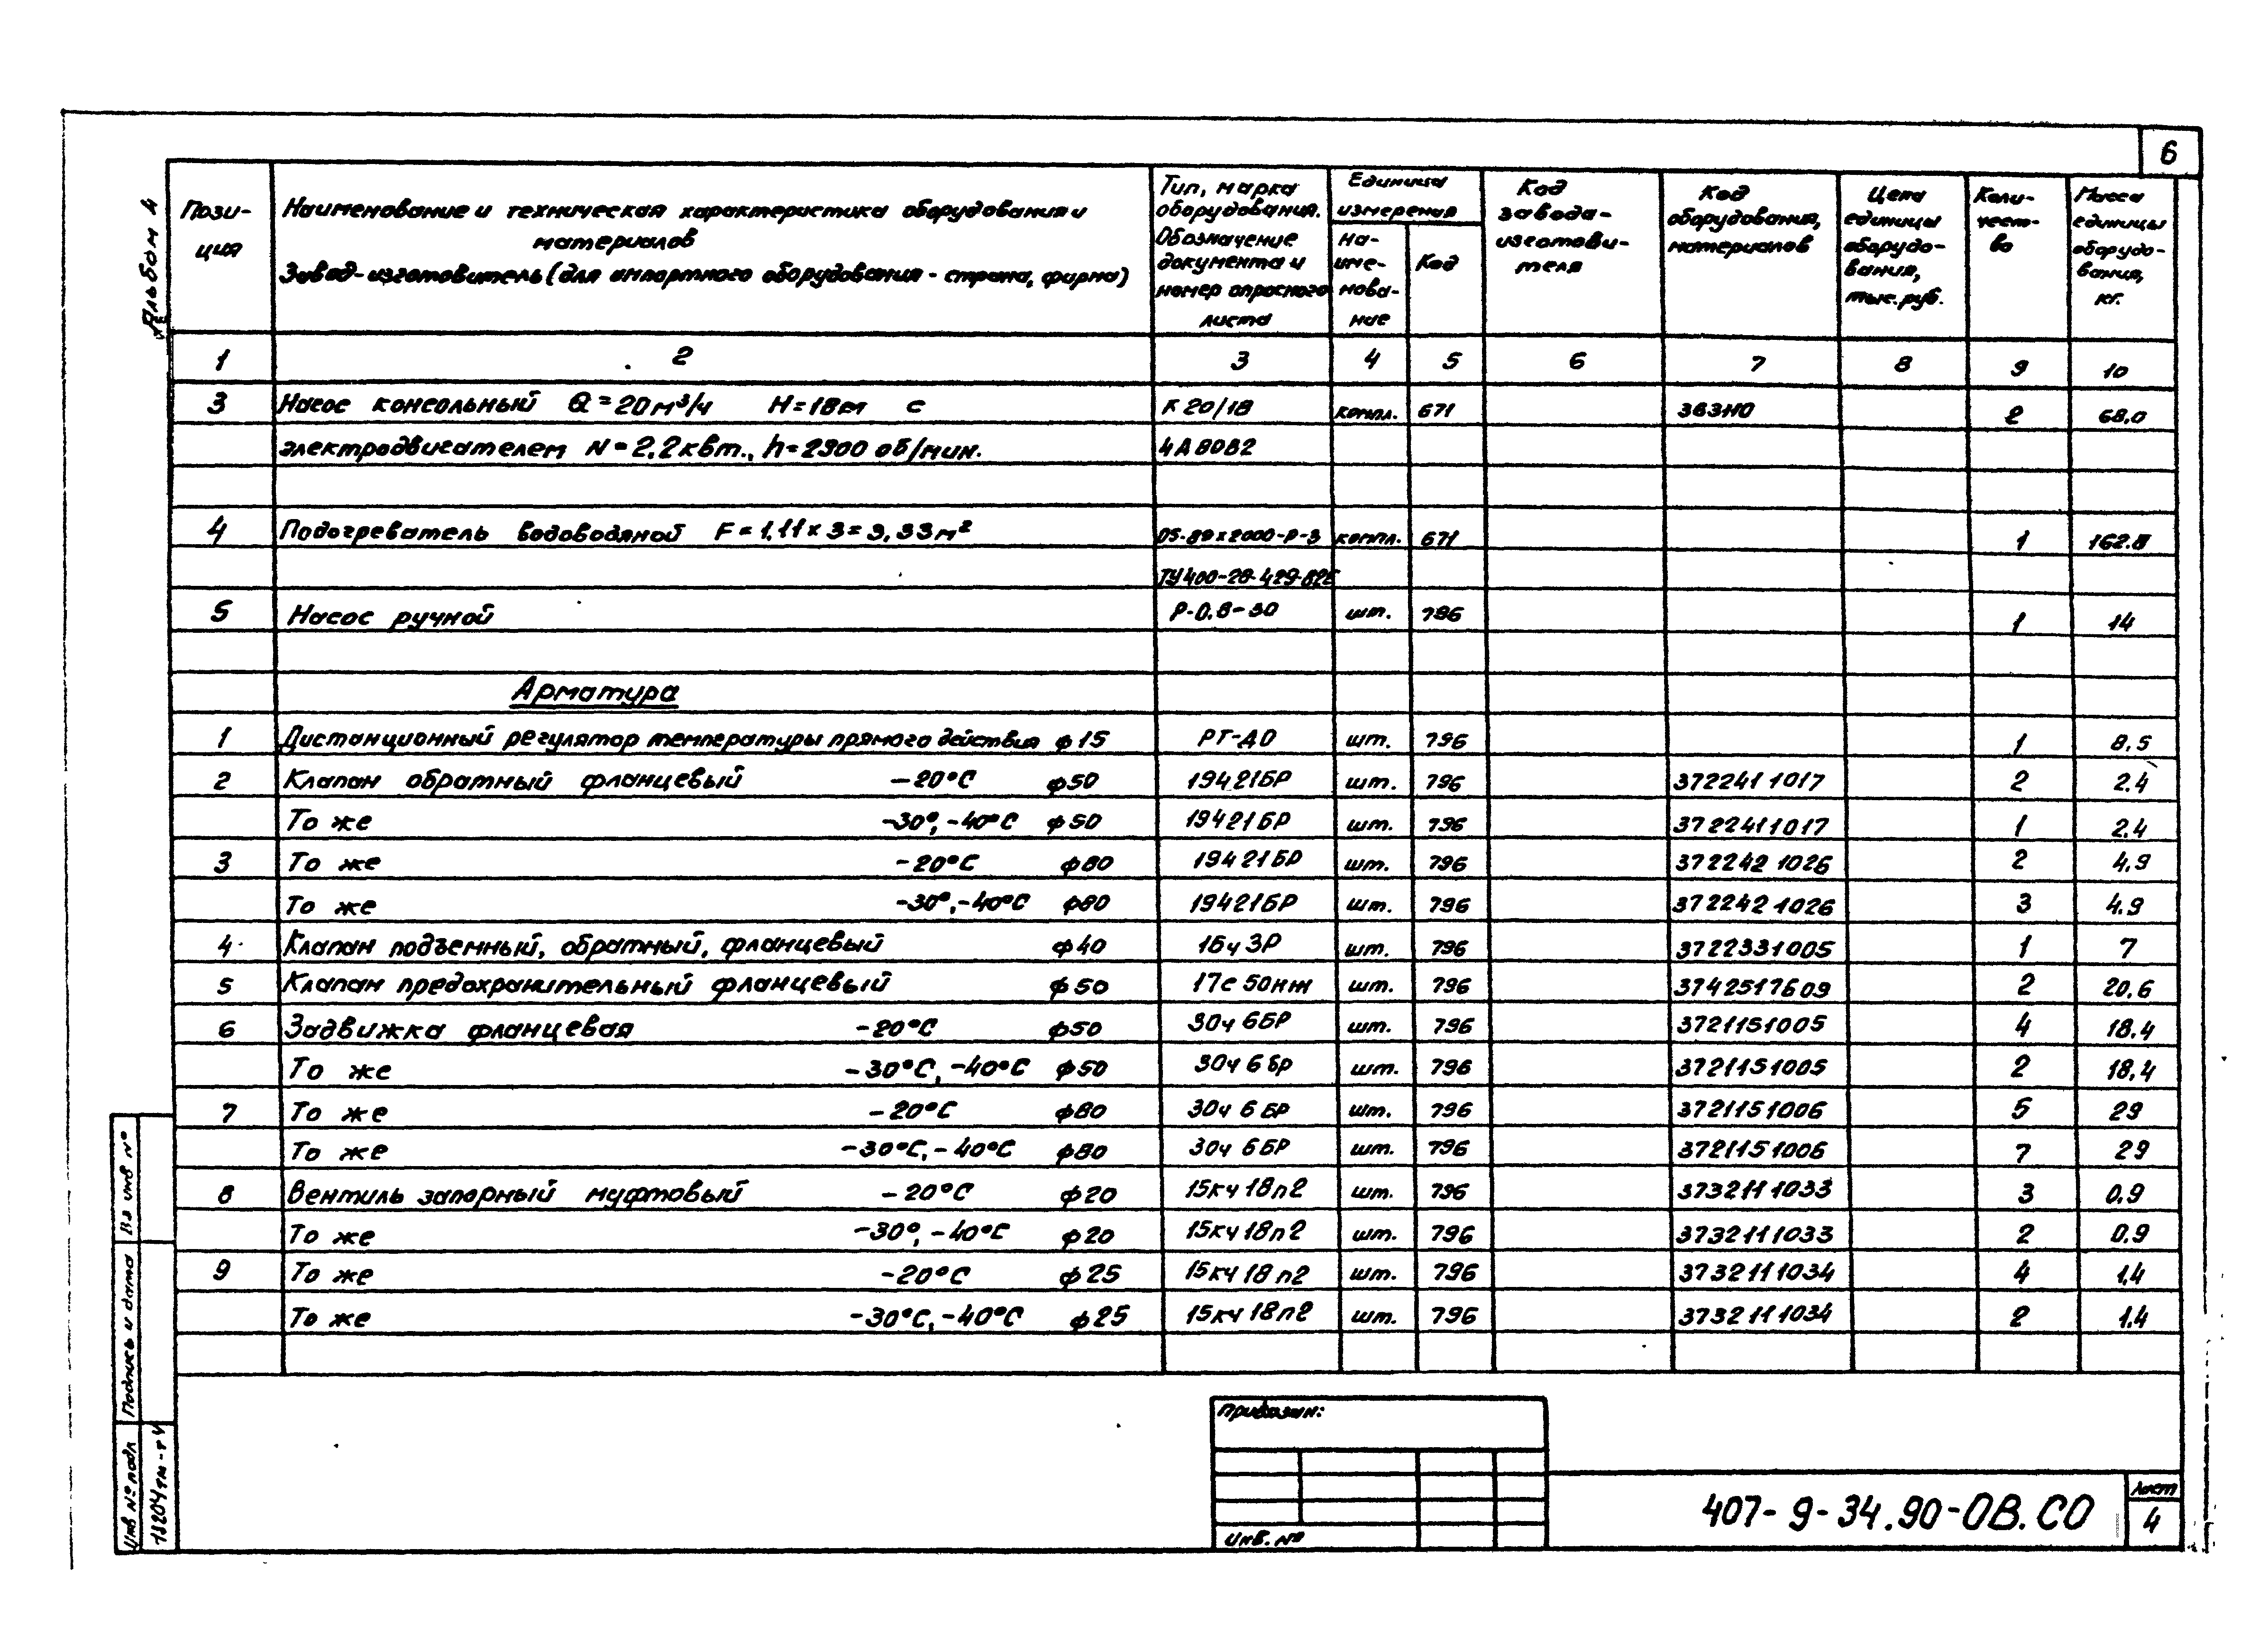 6
Альбом 4
Пози-
ция
Наименование и техническая характеристика оборудования и
материалов
Завод-изготовитель (для импортного оборудования - страна, фирма)
Тип, марка
оборудования.
Обозначение
документа и
номер опросного
листа
Единица
измерения
На-
име-
нова-
ние
Код
Код
завода-
изготови-
теля
Код
оборудования,
материалов
Цена
единицы
оборудо-
вания,
тыс. руб.
Коли-
чест-
во
Масса
единицы
оборудо-
вания,
кг.
1 2 3 4 5 6 7 8 9 10
3 Насос консольный Q=20м³/ч H=18м с К 20/18 компл. 671 3631Ю 2 68,0
электродвигателем N=2,2квт., n=2900 об/мин. 4А80В2
4 Подогреватель водоводяной F=1,11×3=3,33м² компл. 671 1 162.8
ТУ400-28-429-82Е
5 Насос ручной Р-0,8-30 шт. 796 1 14
Арматура
1 Дистанционный регулятор температуры прямого действия ф15 РТ-ДО шт. 796 1 8,5
2 Клапан обратный фланцевый -20°С ф50 19ч21БР шт. 796 3722411017 2 2.4
То же -30°, -40°С ф50 19ч21БР шт. 796 3722411017 1 2.4
3 То же -20°С ф80 19ч21БР шт. 796 3722421026 2 4,9
То же -30°, -40°С ф80 19ч21БР шт. 796 3722421026 3 4.9
4 Клапан подъемный, обратный, фланцевый ф40 16ч3Р шт. 796 3722331005 1 7
5 Клапан предохранительный фланцевый ф50 17с50нж шт. 796 3742517609 2 20,6
6 Задвижка фланцевая -20°С ф50 30ч6БР шт. 796 3721151005 4 18.4
То же -30°С, -40°С ф50 30ч6бр шт. 796 3721151005 2 18,4
7 То же -20°С ф80 30ч6БР шт. 796 3721151006 5 29
То же -30°С, -40°С ф80 30ч6БР шт. 796 3721151006 7 29
8 Вентиль запорный муфтовый -20°С ф20 15кч18п2 шт. 796 3732111033 3 0,9
То же -30°, -40°С ф20 15кч18п2 шт. 796 3732111033 2 0.9
9 То же -20°С ф25 15кч18п2 шт. 796 3732111034 4 1,4
То же -30°С, -40°С ф25 15кч18п2 шт. 796 3732111034 2 1.4
Вз инв №
Подпись и дата
Инв № подл
13204тм-т4
Привязан:
Инв. №
407-9-34.90-ОВ.СО
Лист
4